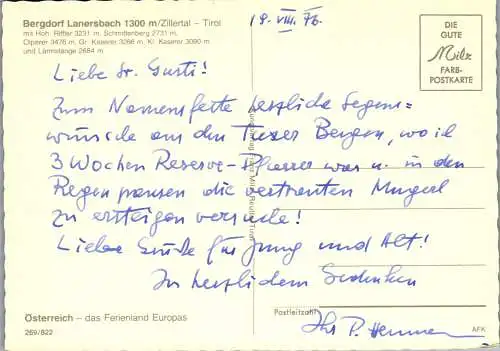 Bergdorf Lanersbach 1300 m/Zillertal – Tirol
mit Hoh. Riffler 3231 m, Schmittenberg 2731 m,
Olperer 3476 m, Gr. Kaserer 3266 m, Kl. Kaserer 3090 m
und Lärmstange 2684 m
19. VIII. 76.
DIE
GUTE
Milz
FARB-
POSTKARTE
Liebe Sr. Gusti!
Zum Namensfeste herzliche Segens=
wünsche aus den Tuxer Bergen, wo ich
3 Wochen Reserve-Pfarrer war u. in den
Regenpausen die vertrauten Mugerl
zu ersteigen versuche!
Liebe Grüße für Jung und Alt!
In herzlichem Gedenken
Ihr P.
Postleitzahl
Österreich – das Ferienland Europas
269/822
AFK